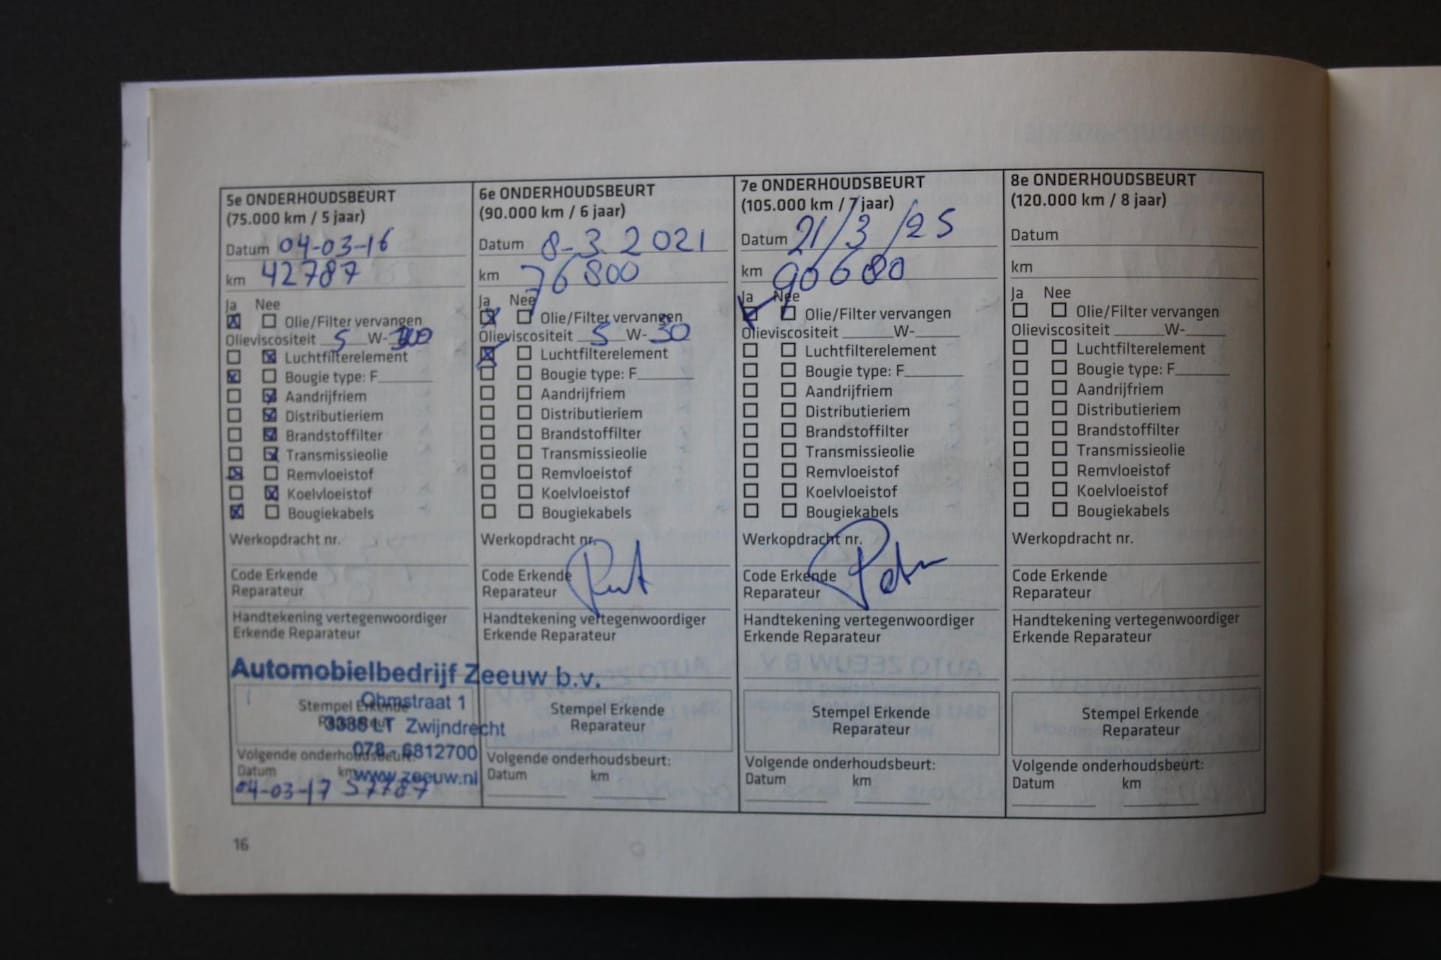 5e ONDERHOUDSBEURT
(75.000 km / 5 jaar)
Datum 04-03-16
km 42787
Ja Nee
Olie/Filter vervangen
Olieviscositeit 5 W-
Luchtfilterelement
Bougie type: F
Aandrijfriem
Distributieriem
Brandstoffilter
Transmissieolie
Remvloeistof
Koelvloeistof
Bougiekabels
Werkopdracht nr.
Code Erkende
Reparateur
Handtekening vertegenwoordiger
Erkende Reparateur
Automobielbedrijf Zeeuw b.v.
Ohmstraat 1
Stempel Erkende
3335 LT Zwijndrecht
078 - 6812700
Volgende onderhoudsbeurt:
www.zeeuw.nl
Datum km
04-03-17 57787
6e ONDERHOUDSBEURT
(90.000 km / 6 jaar)
Datum 8-3 2021
km 76800
Ja Nee
Olie/Filter vervangen
Olieviscositeit 5 W-30
Luchtfilterelement
Bougie type: F
Aandrijfriem
Distributieriem
Brandstoffilter
Transmissieolie
Remvloeistof
Koelvloeistof
Bougiekabels
Werkopdracht nr.
Code Erkende
Reparateur
Handtekening vertegenwoordiger
Erkende Reparateur
Stempel Erkende
Reparateur
Volgende onderhoudsbeurt:
Datum km
7e ONDERHOUDSBEURT
(105.000 km / 7 jaar)
Datum 21/3/25
km 90680
Ja Nee
Olie/Filter vervangen
Olieviscositeit W-
Luchtfilterelement
Bougie type: F
Aandrijfriem
Distributieriem
Brandstoffilter
Transmissieolie
Remvloeistof
Koelvloeistof
Bougiekabels
Werkopdracht nr.
Code Erkende
Reparateur
Handtekening vertegenwoordiger
Erkende Reparateur
Stempel Erkende
Reparateur
Volgende onderhoudsbeurt:
Datum km
8e ONDERHOUDSBEURT
(120.000 km / 8 jaar)
Datum
km
Ja Nee
Olie/Filter vervangen
Olieviscositeit W-
Luchtfilterelement
Bougie type: F
Aandrijfriem
Distributieriem
Brandstoffilter
Transmissieolie
Remvloeistof
Koelvloeistof
Bougiekabels
Werkopdracht nr.
Code Erkende
Reparateur
Handtekening vertegenwoordiger
Erkende Reparateur
Stempel Erkende
Reparateur
Volgende onderhoudsbeurt:
Datum km
16